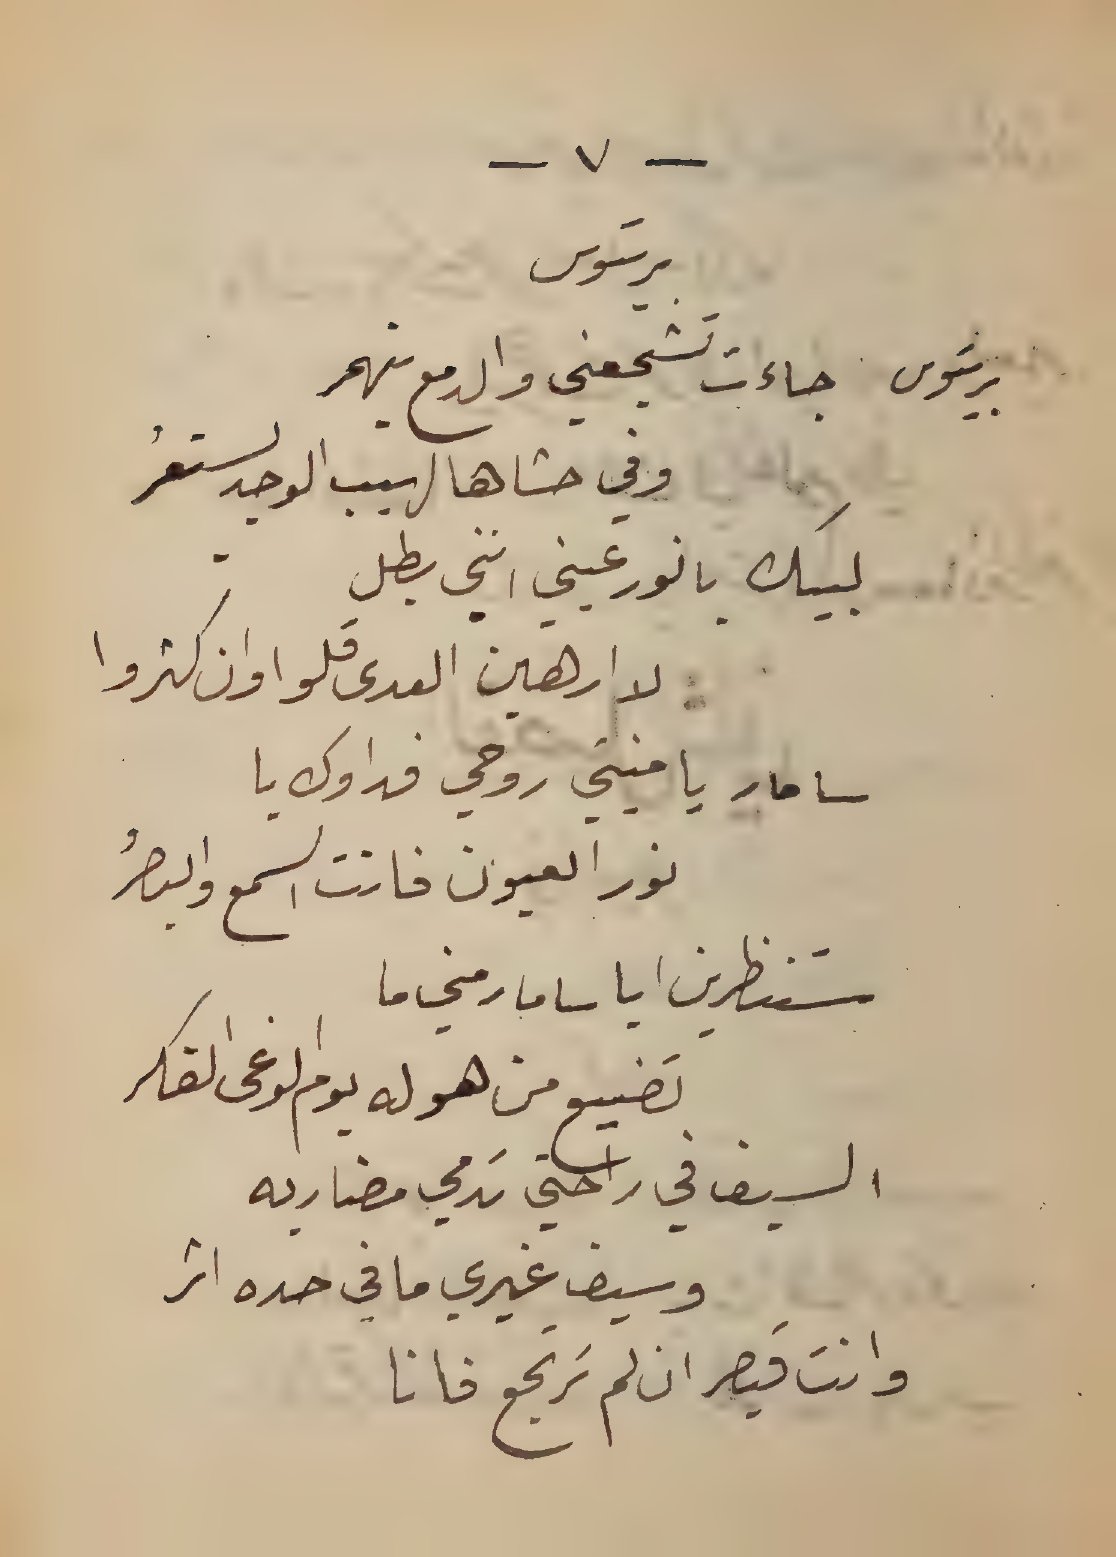 — ٧ —
بريتوس
بريتوس جاءت تشجعني والدمع ينهمر
وفي حشاها لهيب الوجد يستعرُ
لبيك يا نور عيني انني بطل
لا ارهبن العدى قلوا وان كثروا
سامار يا منيتي روحي فداوك يا
نور العيون فانت السمع والبصرُ
ستنظرين ايا سامار مني ما
تضيع من هوله يوم الوغى الفكر
السيف في راحتي تدمي مضاربه
وسيف غيري ما في حده اثر
وانت قيصر ان لم ترتجع فانا